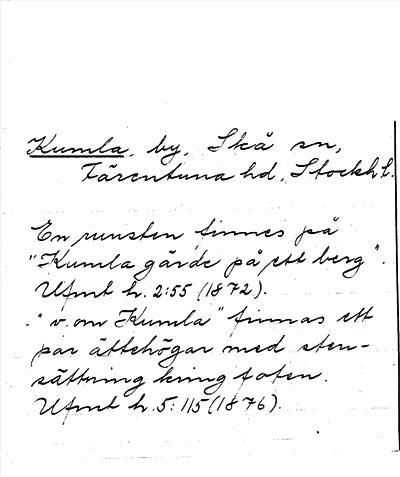 Kumla, by, Skå sn,
Färentuna hd, Stockh l.
En runsten finnes på
"Kumla gärde på ett berg".
Ufmt h. 2:55 (1872).
"v. om Kumla" finnas ett
par ättehögar med sten-
sättning kring foten.
Ufmt h. 5:115 (1876).